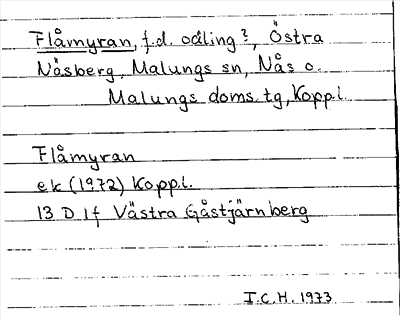 Flåmyran, f.d. odling?, Östra
Näsberg, Malungs sn, Nås o.
Malungs doms.tg, Koppl.
Flåmyran
ek (1972) Koppl.
13 D 1f Västra Gåstjärnberg
I.C.H. 1973